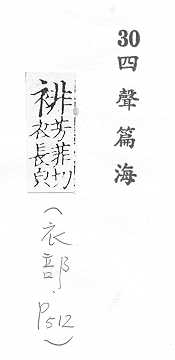 30四聲篇海
裶
芳菲切
衣長皃
(衣部.P512)